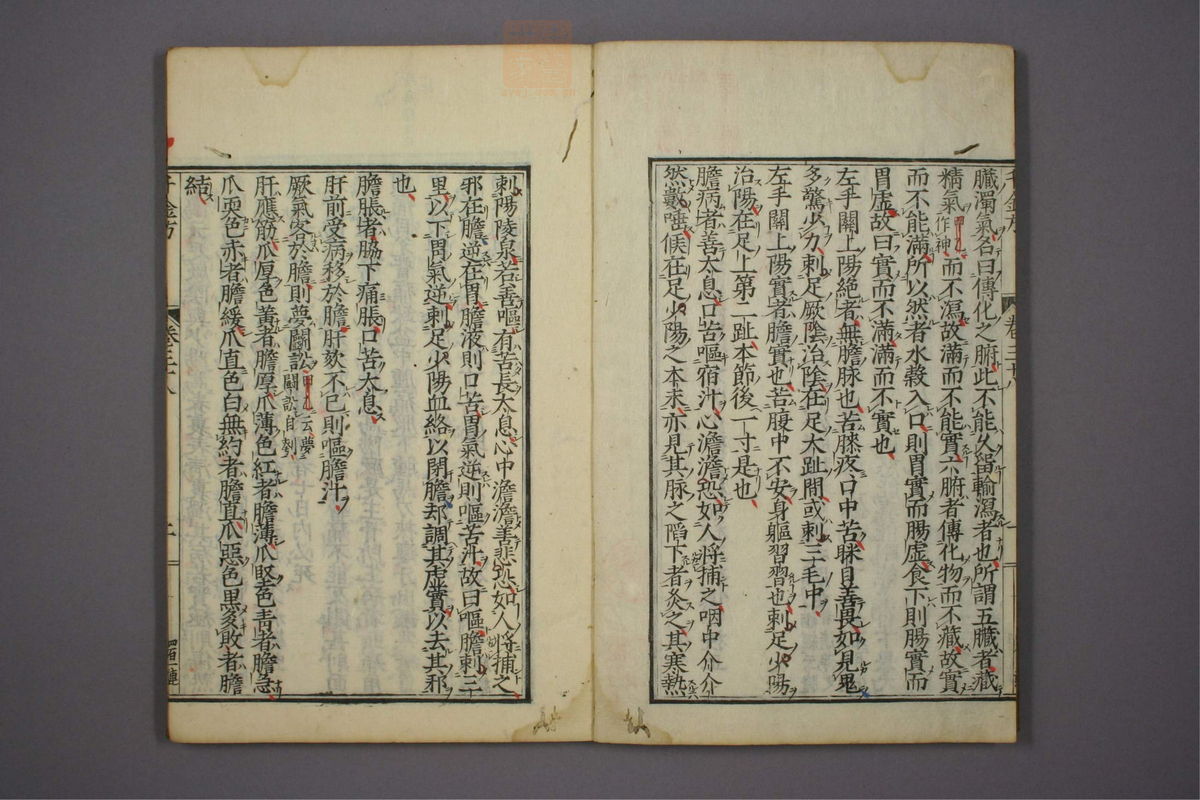 臟濁氣名曰傳化之腑此不能久留輸瀉者也所謂五臟者藏
精氣甲乙作神而不瀉故滿而不能實六腑者傳化物而不藏故實
而不能滿所以然者水穀入口則胃實而腸虛食下則腸實而
胃虛故曰實而不滿滿而不實也
左手關上陽絕者無膽脉也苦膝疼口中苦眯目善畏如見鬼
多驚少力刺足厥陰治陰在足大趾間或刺三毛中
左手關上陽實者膽實也苦腹中不安身軀習習也刺足少陽
治陽在足上第二趾本節後一寸是也
膽病者善太息口苦嘔宿汁心澹澹恐如人將捕之咽中介介
然數唾候在足少陽之本末亦見其脉之陷下者灸之其寒熱
千金方 卷三十八
刺陽陵泉若善嘔有苦長太息心中澹澹善悲恐如人將捕之
邪在膽逆在胃膽液則口苦胃氣逆則嘔苦汁故曰嘔膽刺三
里以下胃氣逆刺足少陽血絡以閉膽却調其虛實以去其邪
也
膽脹者脇下痛脹口苦太息
肝前受病移於膽肝欬不已則嘔膽汁
厥氣客於膽則夢鬪訟甲乙云夢鬪訟自刳
肝應筋爪厚色黃者膽厚爪薄色紅者膽薄爪堅色青者膽急
爪耎色赤者膽緩爪直色白無約者膽直爪惡色黑多敗者膽
結
千金方 卷三十八